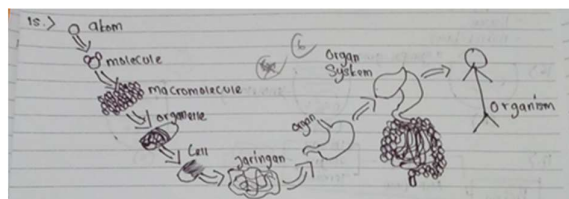 15.)
atom
molecule
macromolecule
organelle
Cell
Jaringan
Organ
Organ
System
Organism
6